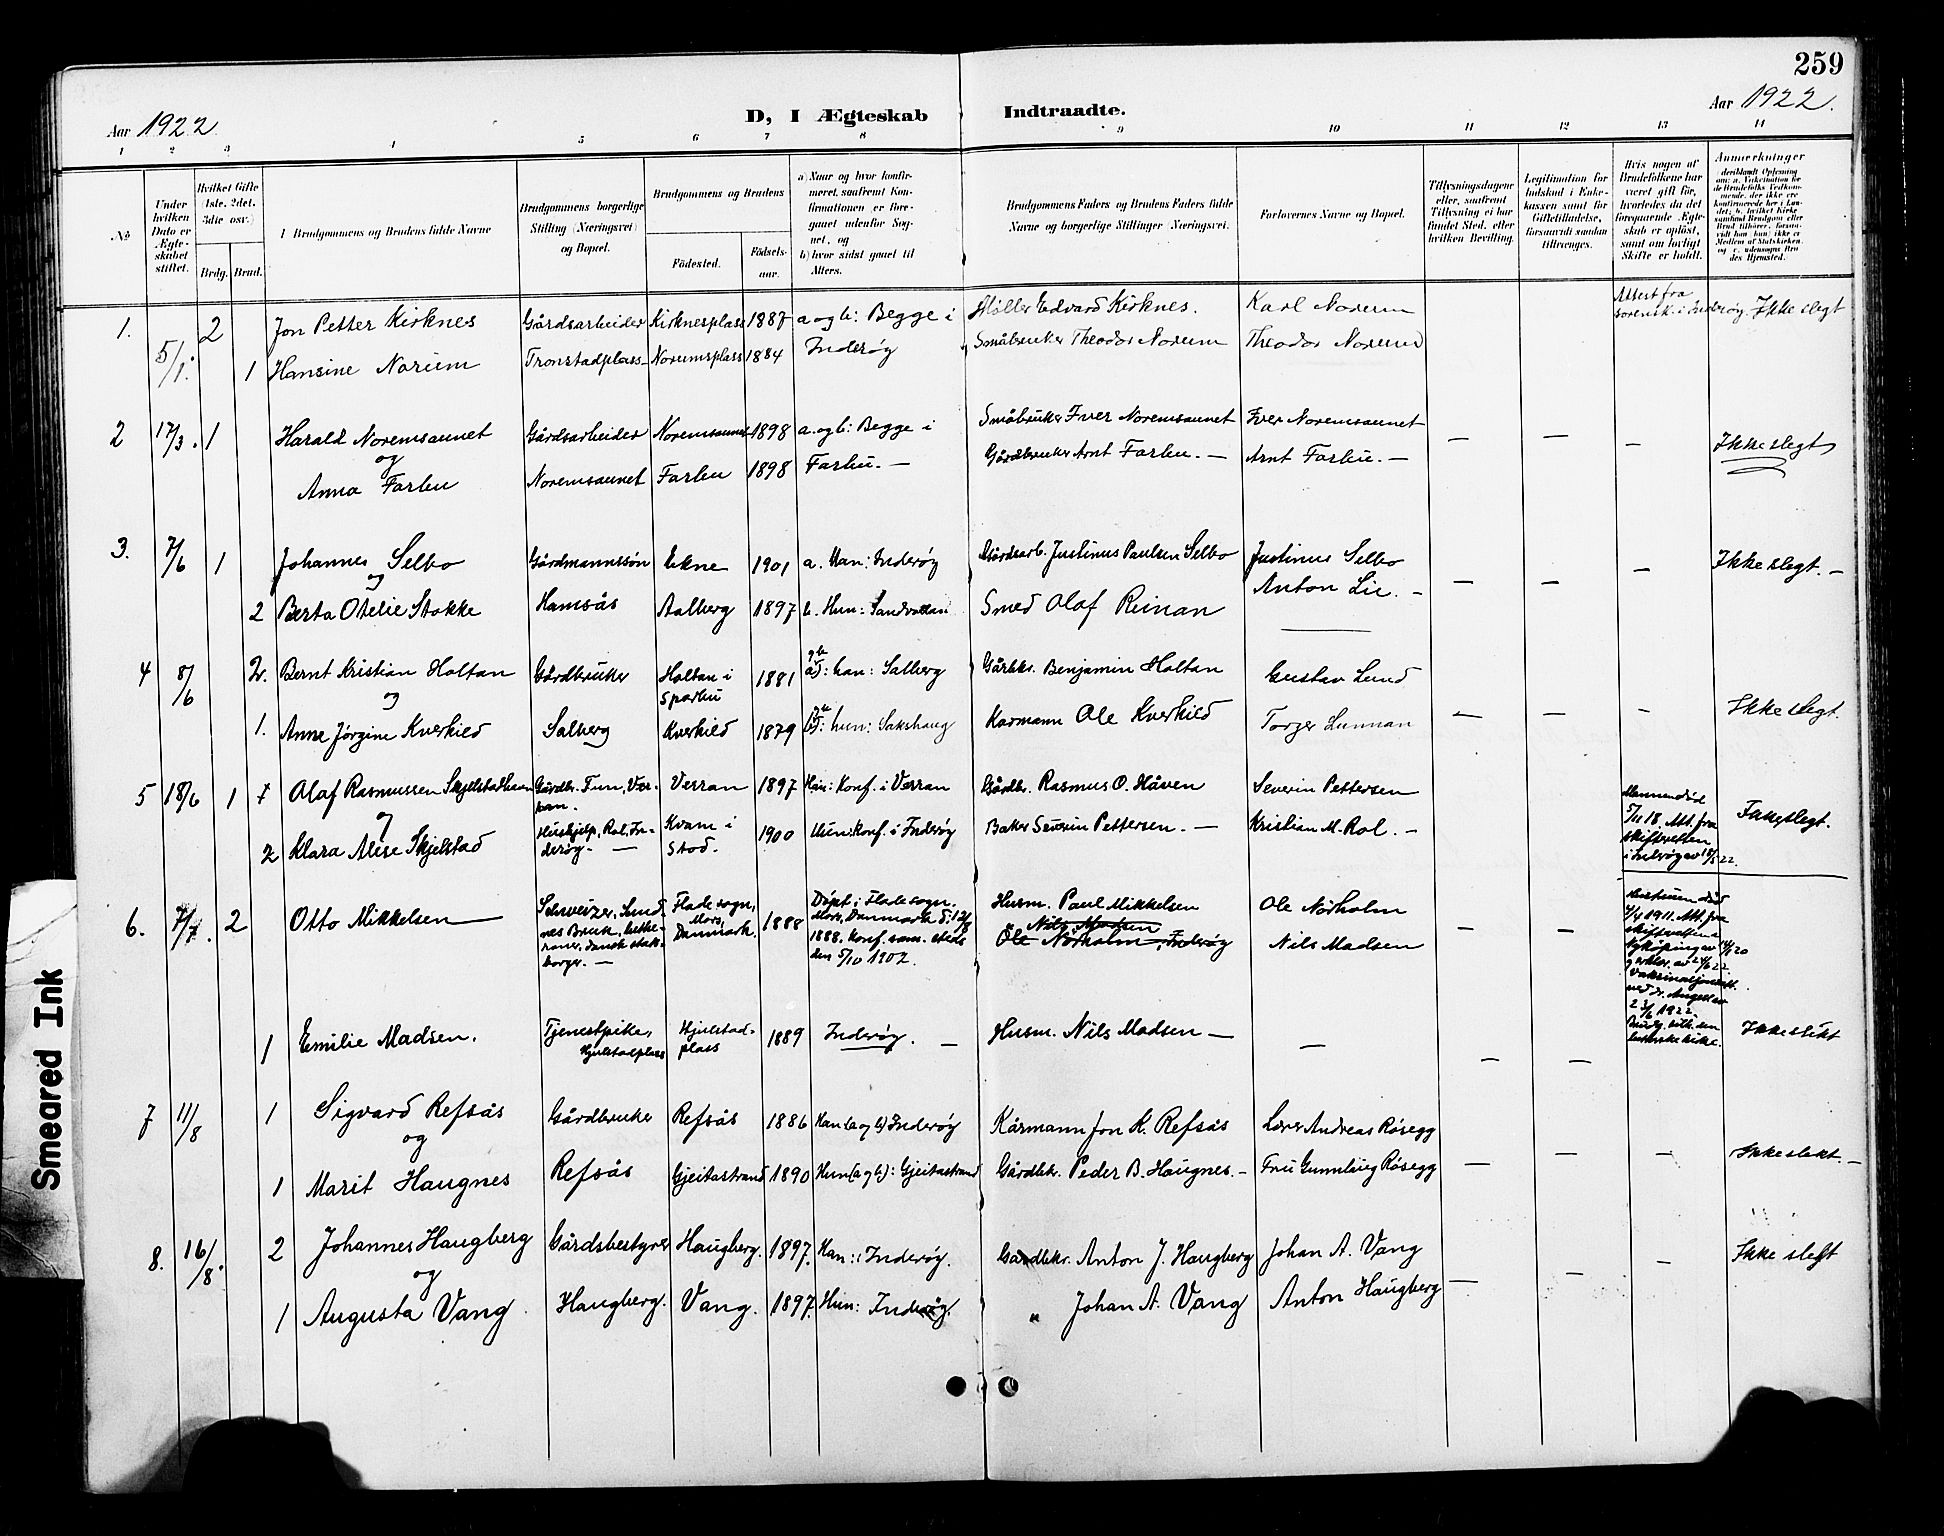 259
Aar 1922.
D, I Ægteskab Indtraadte.
Aar 1922.
1 2 3 4 5 6 7 8 9 10 11 12 13 14
No
Under hvilken Dato er Ægteskabet stiftet.
Hvilket Gifte (1ste, 2det, 3die osv.)
Brdg. Brud.
Brudgommens og Brudens fulde Navne
Brudgommens borgerlige Stilling (Næringsvei) og Bopæl.
Brudgommens og Brudens
Födested.
Födselsaar.
a) Naar og hvor konfirmeret, saafremt Konfirmationen er foregaaet udenfor Sognet, og
b) hvor sidst gaaet til Alters.
Brudgommens Faders og Brudens Faders fulde Navne og borgerlige Stillinger (Næringsvei).
Forlovernes Navne og Bopæl.
Tillysningsdagene eller, saafremt Tillysning ei har fundet Sted, efter hvilken Bevilling.
Legitimation for Indskud i Enkekassen samt for Giftetilladelse, forsaavidt saadan tiltrænges.
Hvis nogen af Brudefolkene har været gift för, hvorledes da det foregaaende Ægteskab er oplöst, samt om lovligt Skifte er holdt.
Anmærkninger
1. 5/1. 2 Jon Petter Kirknes Gårdsarbeider Kirknesplass 1887 a og b: Begge i Møller Edvard Kirknes. Karl Norum Attest fra sorensk. i Inderøy. Ikke slegt
1 Hansine Norum Tronstadplass Norumsplass 1884 Inderøy Småbruker Theodor Norum Theodor Norum
2 17/3. 1 Harald Noremsaunet Gårdsarbeider Noremsaunet 1898 a. og b: Begge i Småbruker Iver Noremsaunet Iver Noremsaunet — — — Ikke slegt
og
Anna Farbu Noremsaunet Farbu 1898 Farbu. — Gårdbruker Arnt Farbu. — Arnt Farbu. —
3. 7/6 1 Johannes Selbo Gårdmannssøn Ekne 1901 a. Han: Inderøy Gårdsarb. Justinus Paulsen Selbo Justinus Selbo — — — Ikke slegt. —
og
2 Berta Otelie Stokke Hamsås Aalberg 1897 b. Hun: Sandvollan Smed Olaf Reinan Anton Lie. —
4 8/6 2. Bernt Kristian Holtan Gårdbruker Holtan i Sparbu 1881 han: Salberg Gårbkr. Benjamin Holtan Gustav Lund
og
1. Anne Jørgine Kverkild Salberg Kverkild 1879 hun: Sakshaug Karmann Ole Kverkild Torger Lunnan — — — Ikke slegt.
5 18/6 1 Olaf Rasmussen Gårdbr. Verran 1897 Han: Konf. i Verran Gårdbr. Rasmus O. Håven Severin Pettersen Mannen død 5/11 18. Att. fra skifteretten i Inderøy av
og
2 Klara Alise Skjelstad Hushjelp, Rol, Inderøy. — Kvam i Stod. 1900 Hun: Konf. i Inderøy Baker Severin Pettersen. — Kristian M. Rol. —
6. 7/7. 2 Otto Mikkelsen Schweizer, Sundnes Bruk, lutheraner, dansk statsborger. — Flade sogn, Mors, Danmark. 1888 Døpt i Flade sogn. Mors, Danmark d. 12/8 1888. Konf. sam. steds den 5/10 1902. Husm. Paul Mikkelsen Ole Nørholm
Nils Madsen Ole Nørholm, Inderøy Nils Madsen — — Hustruen død 4/4 1911. Att. fra skifteretten i Nykøping av
1 Emilie Madsen. Tjenestpike, Hjulstadplass Hjulstadplass 1889 Inderøy. — Husm. Nils Madsen — — — — Ikke slikt
7 11/8 1 Sigvard Refsås Gårdbruker Refsås 1886 Han (a og b) Inderøy Kårmann Jon K. Refsås Lærer Andreas Røsegg
og
1 Marit Haugnes Refsås Gjeitastrand 1890 Hun (a og b): Gjeitastrand Gårdbk. Peder B. Haugnes. — Fru Gunnbjørg Røsegg — — — Ikke slekt. —
8. 16/8. 2 Johannes Haugberg Gårdsbestyrer Haugberg. 1897. Han: Inderøy. Gardbkr. Anton J. Haugberg Johan A. Vang Ikke slegt
og
1 Augusta Vang Haugberg. Vang. 1897. Hun: Inderøy. " Johan A. Vang Anton Haugberg — — —
Smeared Ink